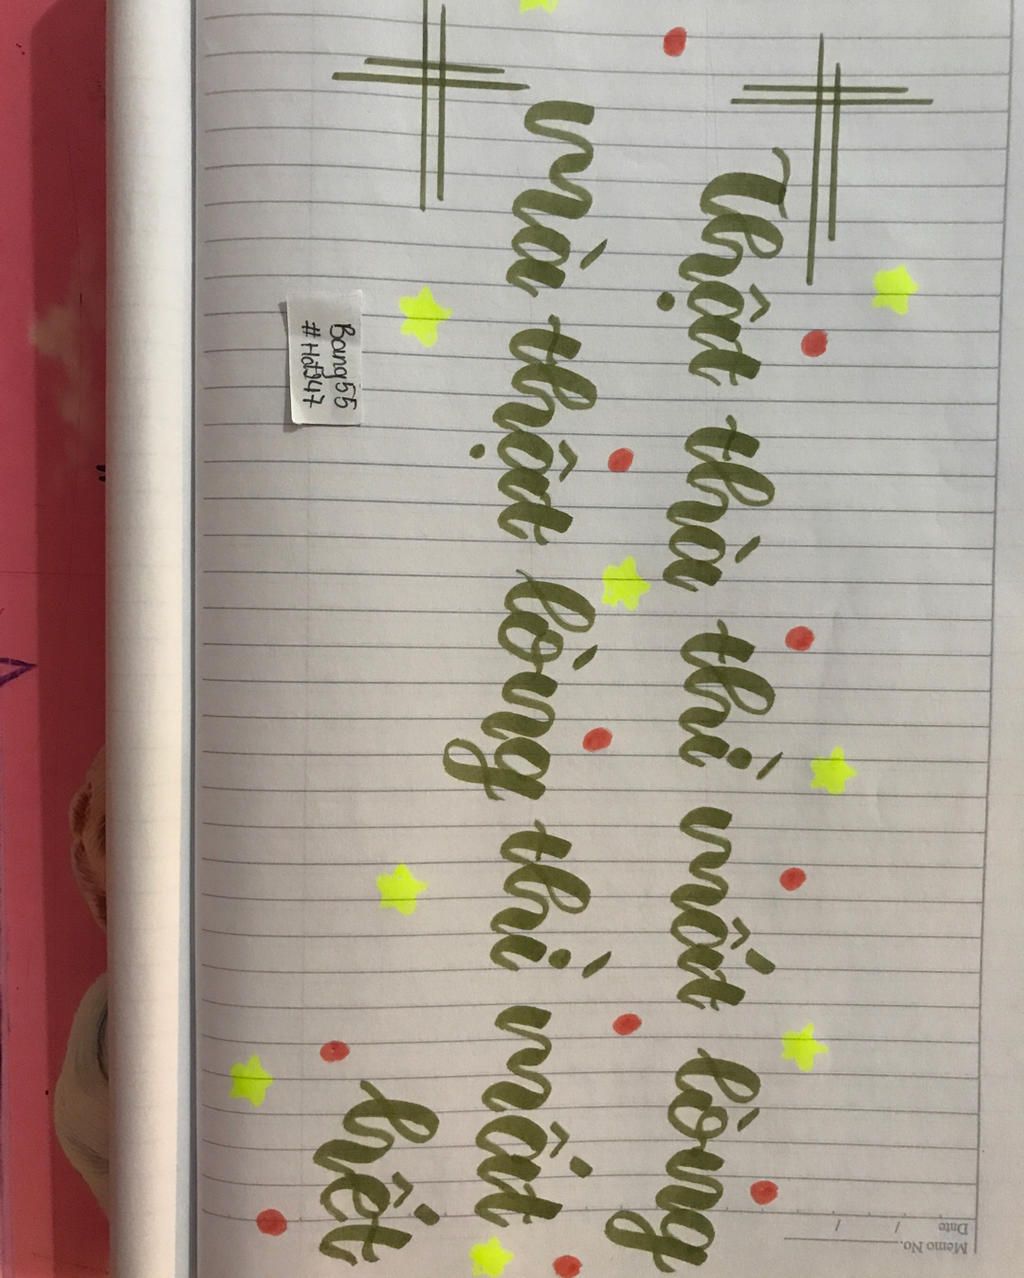 Thật thà thì mất lòng
mà thật lòng thì mất
hết
Bang55
Memo No.
Date / /